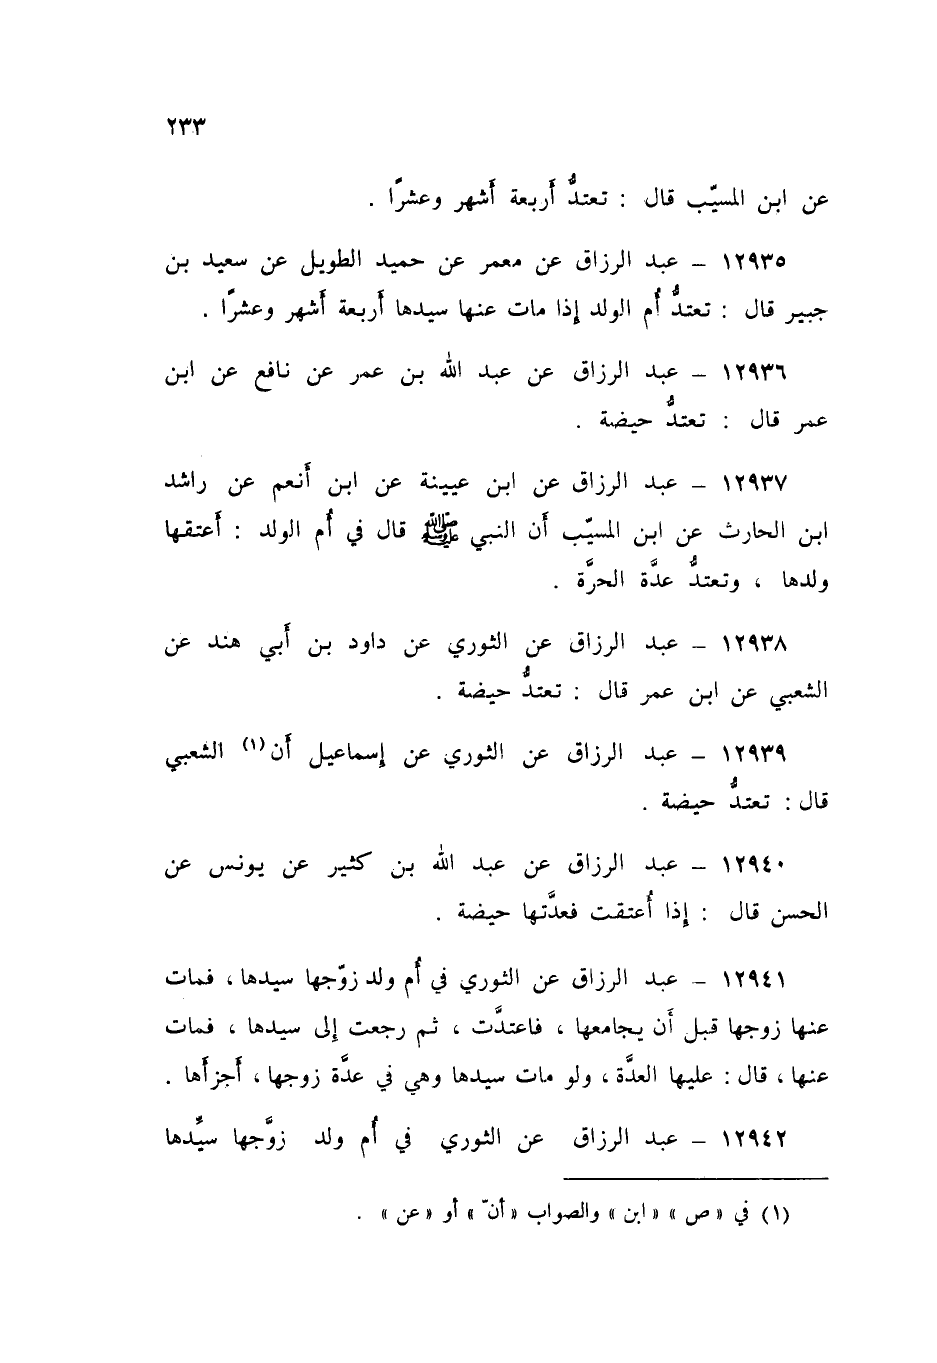 ٢٣٣
عن ابن المسيّب قال : تعتدُّ أَربعة أَشهر وعشرًا .
١٢٩٣٥ – عبد الرزاق عن معمر عن حميد الطويل عن سعيد بن
جبير قال : تعتدُّ أُم الولد إذا مات عنها سيدها أَربعة أَشهر وعشرًا .
١٢٩٣٦ – عبد الرزاق عن عبد الله بن عمر عن نافع عن ابن
عمر قال : تعتدُّ حيضة .
١٢٩٣٧ – عبد الرزاق عن ابن عيينة عن ابن أَنعم عن راشد
ابن الحارث عن ابن المسيّب أَن النبي ﷺ قال في أُم الولد : أَعتقها
ولدها ، وتعتدُّ عدَّة الحرَّة .
١٢٩٣٨ – عبد الرزاق عن الثوري عن داود بن أَبي هند عن
الشعبي عن ابن عمر قال : تعتدُّ حيضة .
١٢٩٣٩ – عبد الرزاق عن الثوري عن إسماعيل أَن(١) الشعبي
قال : تعتدُّ حيضة .
١٢٩٤٠ – عبد الرزاق عن عبد الله بن كثير عن يونس عن
الحسن قال : إذا أُعتقت فعدَّتها حيضة .
١٢٩٤١ – عبد الرزاق عن الثوري في أُم ولد زوّجها سيدها ، فمات
عنها زوجها قبل أَن يجامعها ، فاعتدَّت ، ثم رجعت إلى سيدها ، فمات
عنها ، قال : عليها العدَّة ، ولو مات سيدها وهي في عدَّة زوجها ، أَجزأَها .
١٢٩٤٢ – عبد الرزاق عن الثوري في أُم ولد زوَّجها سيِّدها
(١) في « ص » « ابن » والصواب « أنّ » أو « عن » .